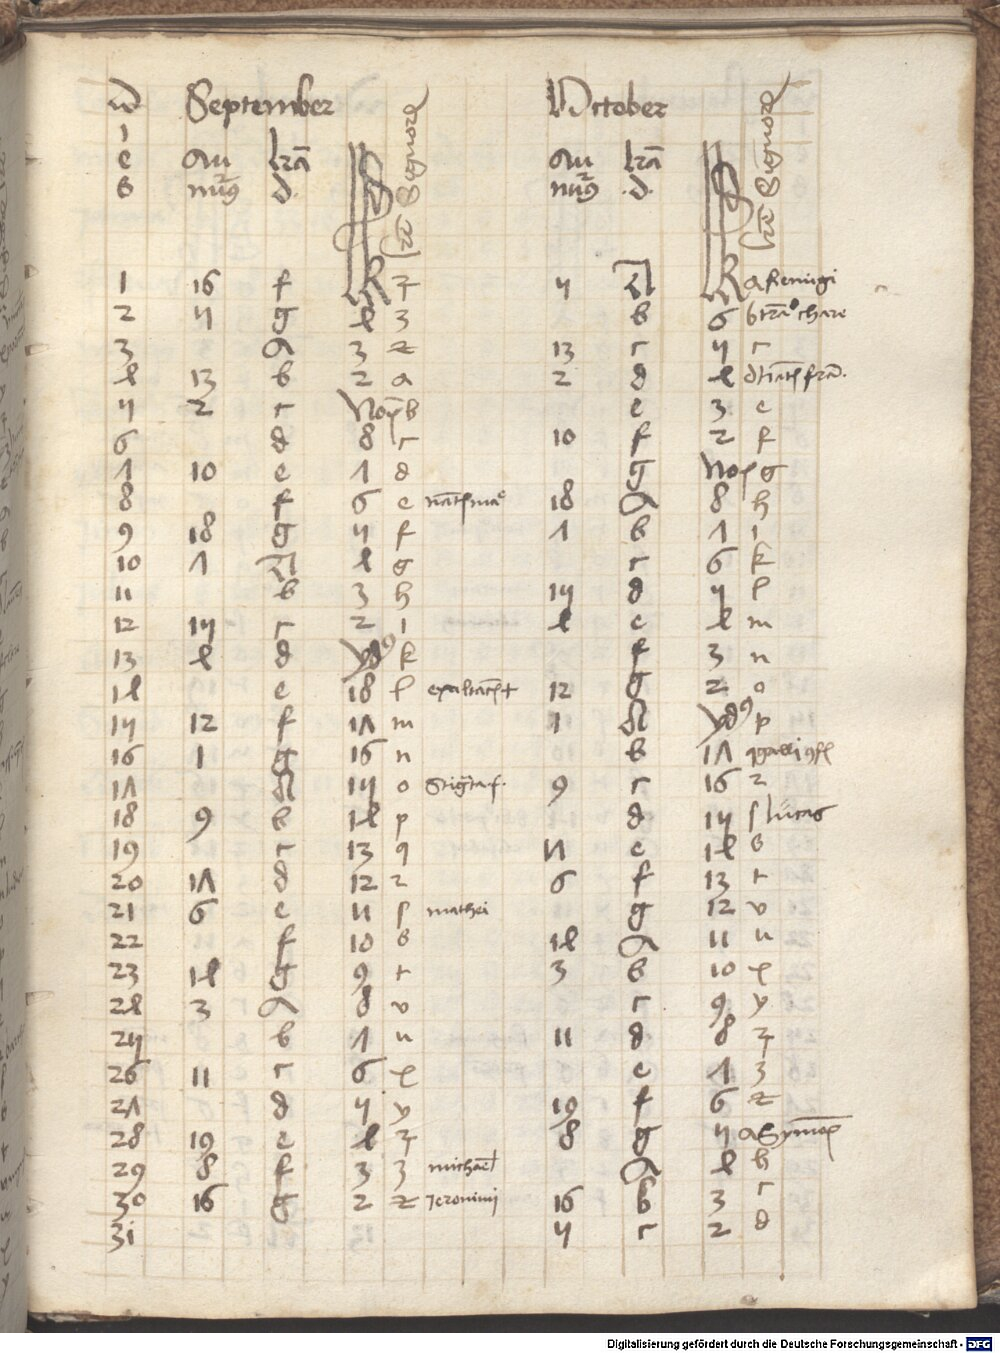 D September October
i
e Au lrã Au lrã
s nũꝰ d. nũꝰ .d.
1 16 f KL ꝛ 5 A KL a Remigi
2 5 g 4 3 b 6 b
3 A 3 z 13 c 5 c
4 13 b 2 a 2 d 4 d
5 2 c Noꝰ b e 3 e
6 d 8 c 10 f 2 f
7 10 e 7 d g Noꝰ g
8 f 6 e 18 A 8 h
9 18 g 5 f 7 b 7 i
10 7 A 4 g c 6 k
11 b 3 h 15 d 5 l
12 15 c 2 i 4 e 4 m
13 4 d ydꝰ k f 3 n
14 e 18 l exaltac̃ + 12 g 2 o
15 12 f 17 m 1 A ydꝰ p
16 1 g 16 n b 17 q galli
17 A 15 o 9 c 16 r
18 9 b 14 p d 15 ſ lucas
19 c 13 q 17 e 14 s
20 17 d 12 r 6 f 13 t
21 6 e 11 ſ mathei g 12 v
22 f 10 s 14 A 11 u
23 14 g 9 t 3 b 10 x
24 3 A 8 v c 9 y
25 b 7 u 11 d 8 ꝛ
26 11 c 6 x e 7 3
27 d 5 y 19 f 6 z
28 19 e 4 ꝛ 8 g 5 a Symoꝭ
29 8 f 3 3 michael A 4 b
30 16 g 2 z Jeronimi 16 b 3 c
31 5 c 2 d
Digitalisierung gefördert durch die Deutsche Forschungsgemeinschaft - DFG